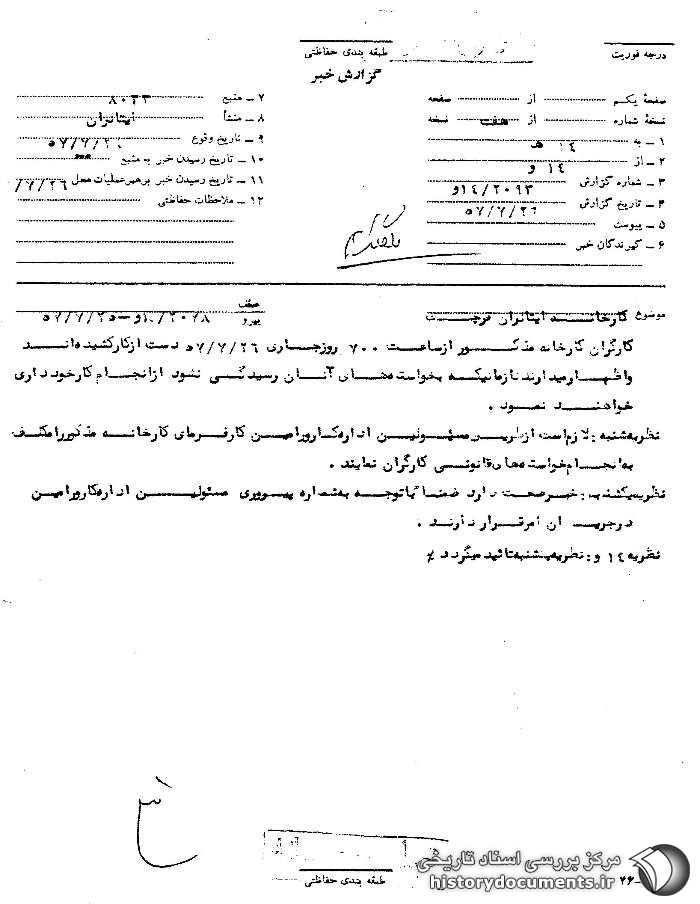 درجه فوریت
طبقه بندی حفاظتی
گزارش خبر
صفحهٔ یکم از صفحه
نسخهٔ شماره از هفت نسخه
۱ - به ۱۴ هـ
۲ - از ۱۴ و
۳ - شماره گزارش ۱۴/۲۰۹۳و
۴ - تاریخ گزارش ۵۷/۷/۲۶
۵ - پیوست
۶ - گیرندگان خبر
۷ - منبع ۸۰۲۲
۸ - منشأ ایتانران
۹ - تاریخ وقوع
۱۰ - تاریخ رسیدن خبر به منبع
۱۱ - تاریخ رسیدن خبر برهبرعملیات محل /۷/۲۶
۱۲ - ملاحظات حفاظتی
موضوع کارخانه ایتانران
عطف
پیرو
کارگران کارخانه مذکور ازساعت ۷۰۰ روزجاری ۵۷/۷/۲۶ دست ازکارکشیده‌اند
واظهارمیدارندتازمانیکه بخواسته‌های آنان رسیدگی نشود ازانجام کارخودداری
خواهند نمود .
نظریه‌شنبه : لازم‌است ازطریق مسئولین اداره‌کارورامین کارفرمای کارخانه مذکوررامکلف
به‌انجام‌خواسته‌های‌قانونی کارگران نمایند .
نظریه‌یکشنبه : خبرصحت دارد ضمناباتوجه به‌شماره پیروی مسئولین اداره‌کارورامین
درجریان امرقراردارند .
نظریه ۱۴ و : نظریه‌یکشنبه‌تائیدمیگردد
طبقه بندی حفاظتی
۲۶-
مرکز بررسی اسناد تاریخی
historydocuments.ir